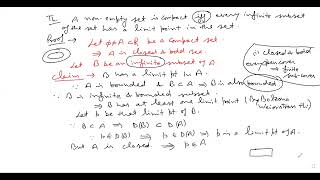 Th. A non-empty set is compact iff every infinite subset
of the set has a limit point in the set.
Proof → Let φ≠A⊂R be a compact set
⇒ A is closed & bdd set.
Let B be an infinite subset of A
Claim → B has a limit pt in A.
∵ A is bounded & B⊂A ⇒ B is also bounded
∵ B is infinite & bounded subset.
⇒ B has at least one limit point (By Bolzano
Weierstrass th.)
Let p be that limit pt of B.
∵ B⊂A ⇒ D(B) ⊂ D(A)
∵ p∈D(B) ⇒ p∈D(A) ⇒ p is a limit pt of A.
But A is closed ⇒ p∈A
(i) closed & bdd
open cover
→ finite
sub-cover